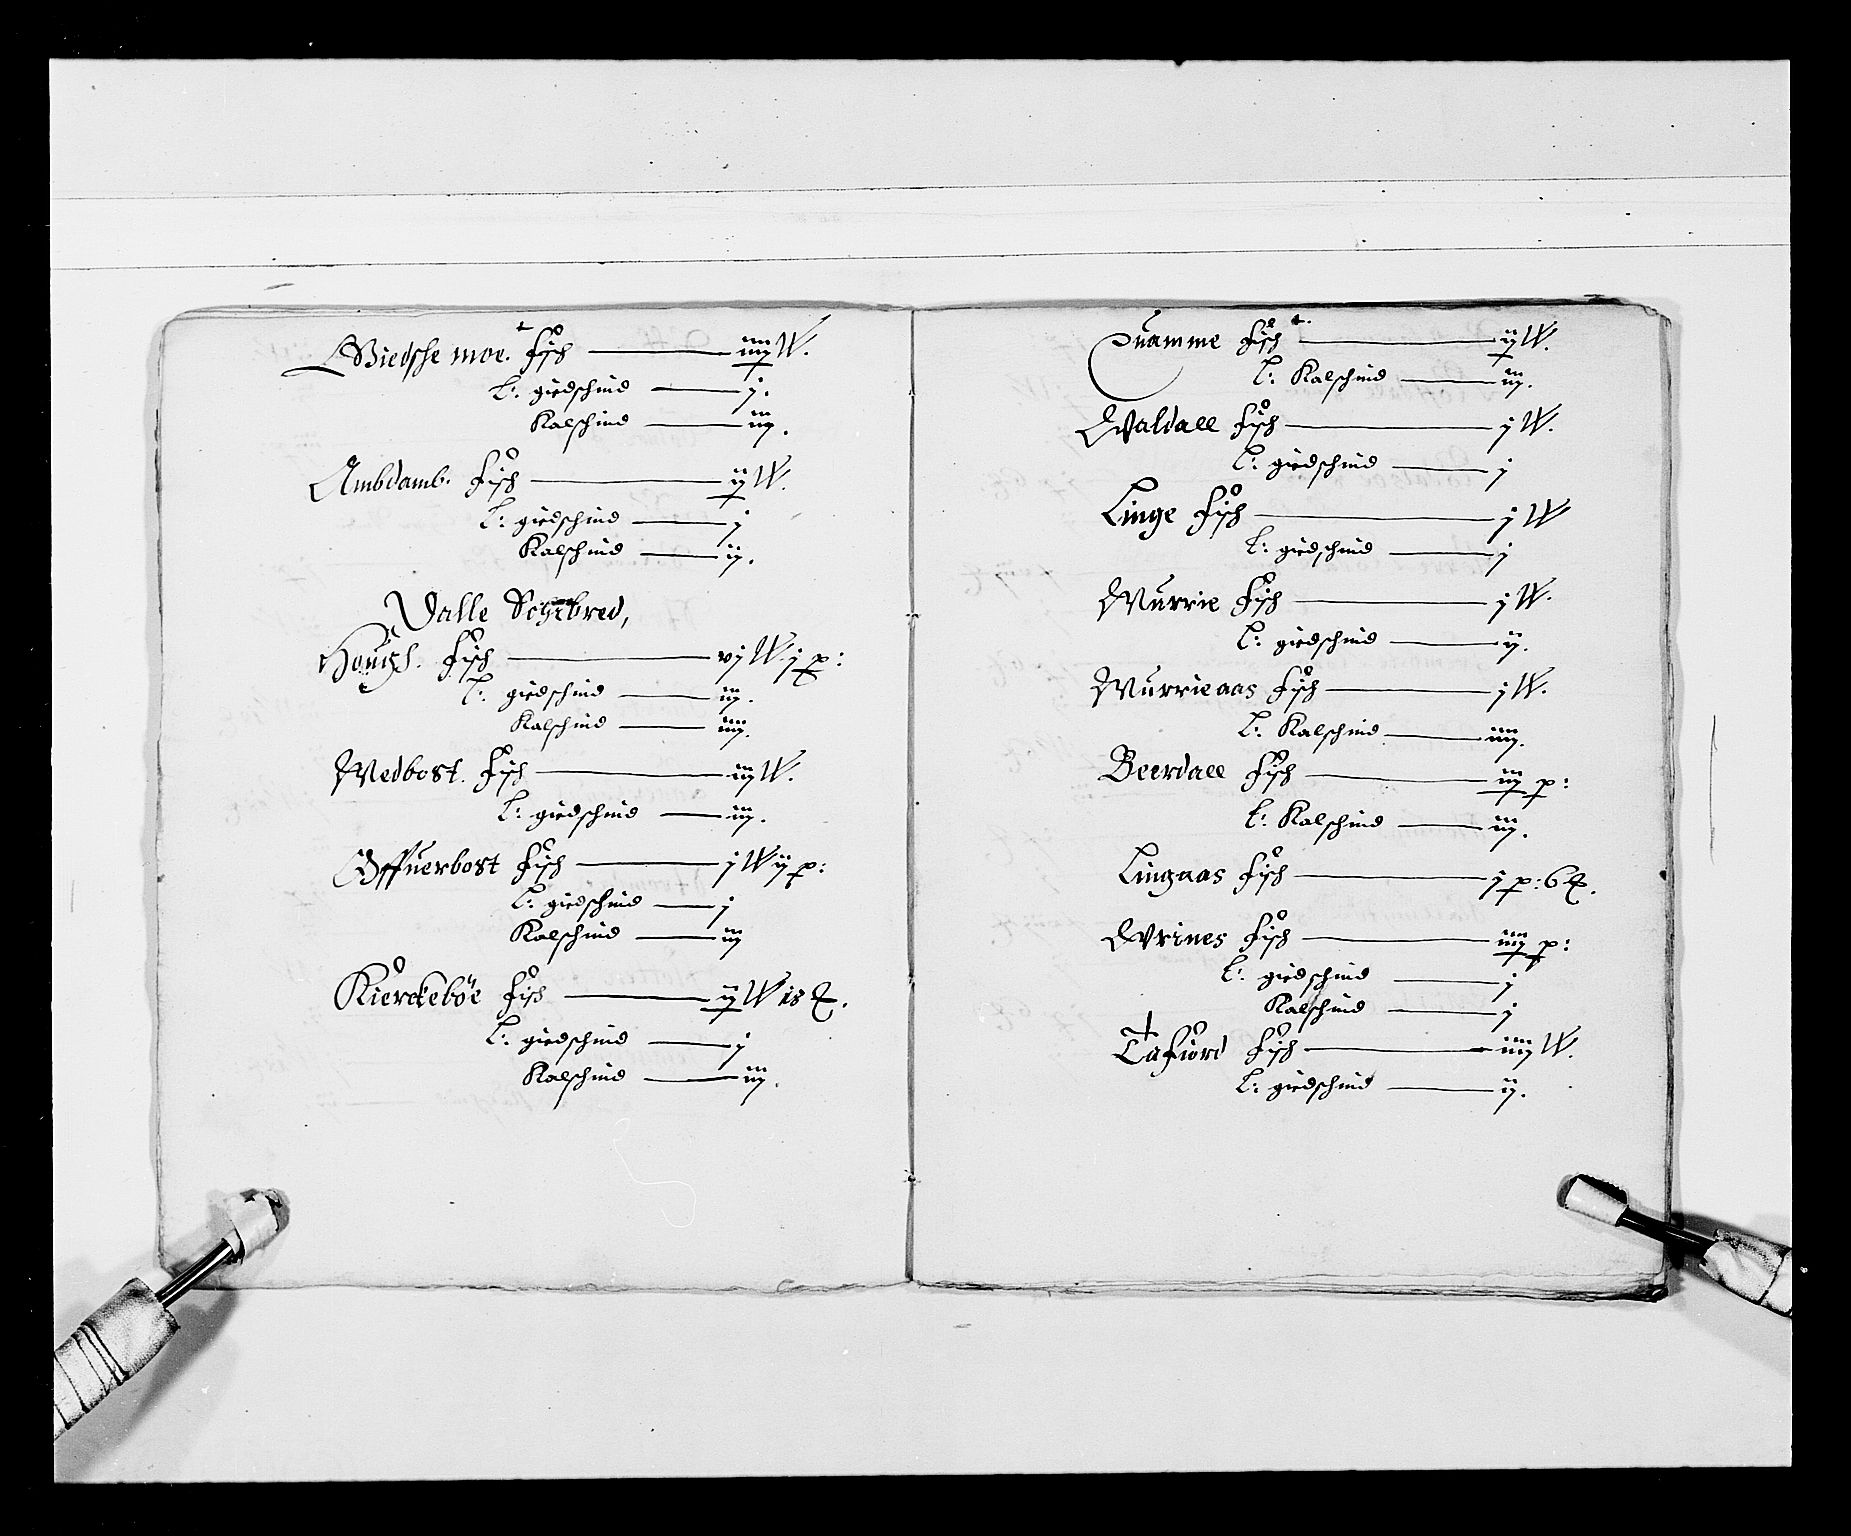 Giedsche moe. Fisch — iiij W.
L: giedschind — j.
Kalschind — iij.
Ambdamb. Fisch — ij W.
L: giedschind — j
Kalschind — ij.
Valle Schibred,
Hougs. Fisch — vj W j p:
L: giedschind — iij.
Kalschind — iiij.
Medbost. Fisch — iij W.
L: giedschind — iij.
Offuerbost Fisch — j W ij p:
L: giedschind — j
Kalschind — iij
Kierckebøe Fisch — ij W 18
L: giedschind — j
Kalschind — iij.
Quamme Fisch — ij W.
L: Kalschind — iij.
Waldall Fisch — j W.
L: giedschind — j
Linge Fisch — j W
L: giedschind — j
Murrie Fisch — j W.
L: giedschind — ij.
Murrieaas Fisch — j W.
L: Kalschind — iiij.
Beerdall Fisch — iij p:
L: Kalschind — iij.
Lingaas Fisch — j p: 6
Wrines Fisch — iiij p:
L: giedschind — j
Kalschind — j
Tafiord Fisch — iiij W.
L: giedschind — ij.